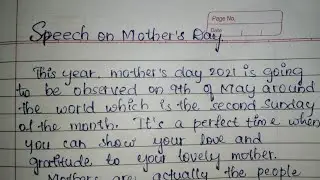 Page No.
Date
Speech on Mother's Day
This year, mother's day 2021 is going
to be observed on 9th of May around
the world which is the second Sunday
of the month. It's a perfect time when
you can show your love and
gratitude to your lovely mother.
Mothers are actually the people